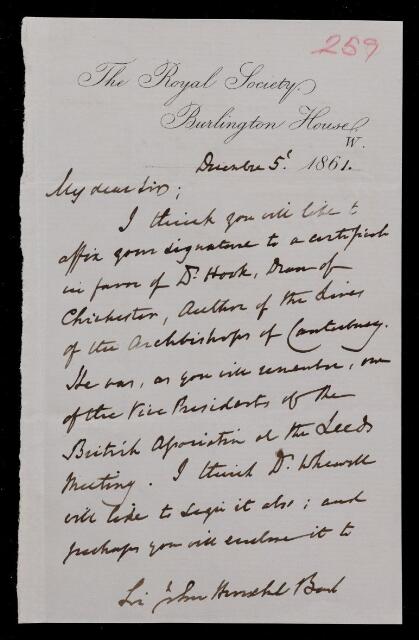 259
The Royal Society,
Burlington House,
W.
December 5. 1861.
My dear Sir;
I think you will like to
affix your signature to a certificate
in favor of Dr. Hook, Dean of
Chichester, Author of the Lives
of the Archbishops of Canterbury.
He was, as you will remember, one
of the Vice Presidents of the
British Association at the Leeds
Meeting. I think Dr. Whewell
will like to sign it also; and
perhaps you will enclose it to
Sir John Herschel Bart